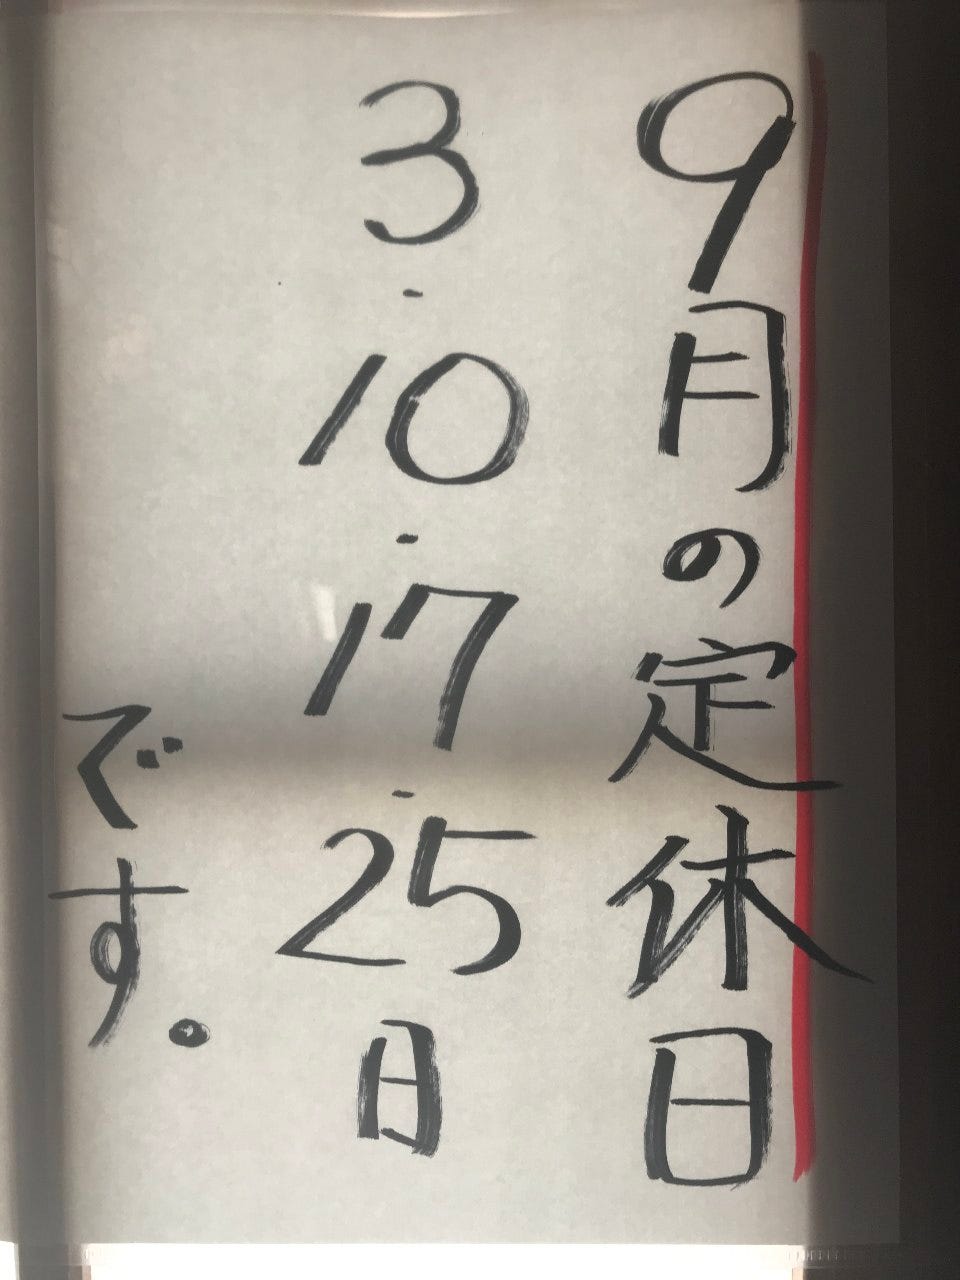 9月の定休日
3・10・17・25日
です。